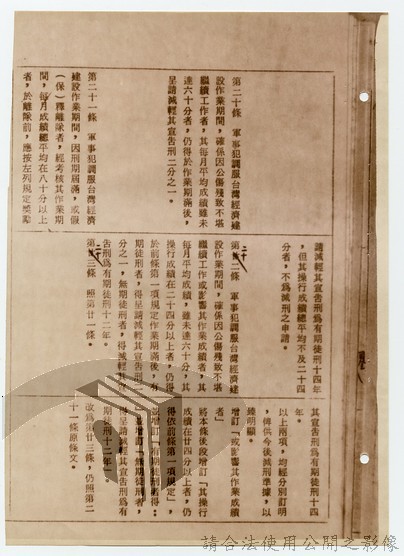 第二十條　軍事犯調服台灣經濟建
設作業期間，確係因公傷殘致不堪
繼續工作者，其每月平均成績雖未
達六十分者，仍得於作業期滿後，
呈請減輕其宣告刑二分之一。
第二十一條　軍事犯調服台灣經濟
建設作業期間，因刑期屆滿，或假
（保）釋離隊者，經考核其作業期
間，每月成績總平均在八十分以上
者，於離隊前，應按左列規定獎勵
請減輕其宣告刑為有期徒刑十四年
，但其操行成績總平均不及二十四
分者，不為減刑之申請。
第二十二條　軍事犯調服台灣經濟建
設作業期間，確係因公傷殘致不堪
繼續工作或影響其作業成績者，其
每月平均成績，雖未達六十分，其
操行成績在二十四分以上者，仍得
於前條第一項規定作業期滿後，有
期徒刑者，得呈請減輕其宣告刑二
分之一，無期徒刑者，得減輕其宣
告刑為有期徒刑十二年。
第二十三條　照第廿一條。
其宣告刑為有期徒刑十四
年。
以上兩項，均經分別訂明
，俾供今後減刑準據，以
臻明顯。
增訂「或影響其作業成績
者」
將本條後段增訂「其操行
成績在廿四分以上者，仍
得依前條第一項規定」，
並增訂「有期徒刑者得：
：並增訂「無期徒刑者，
得呈請減輕其宣告刑為有
期徒刑十二年」。
改為第廿三條，仍照第二
十一條原條文。
請合法使用公開之影像